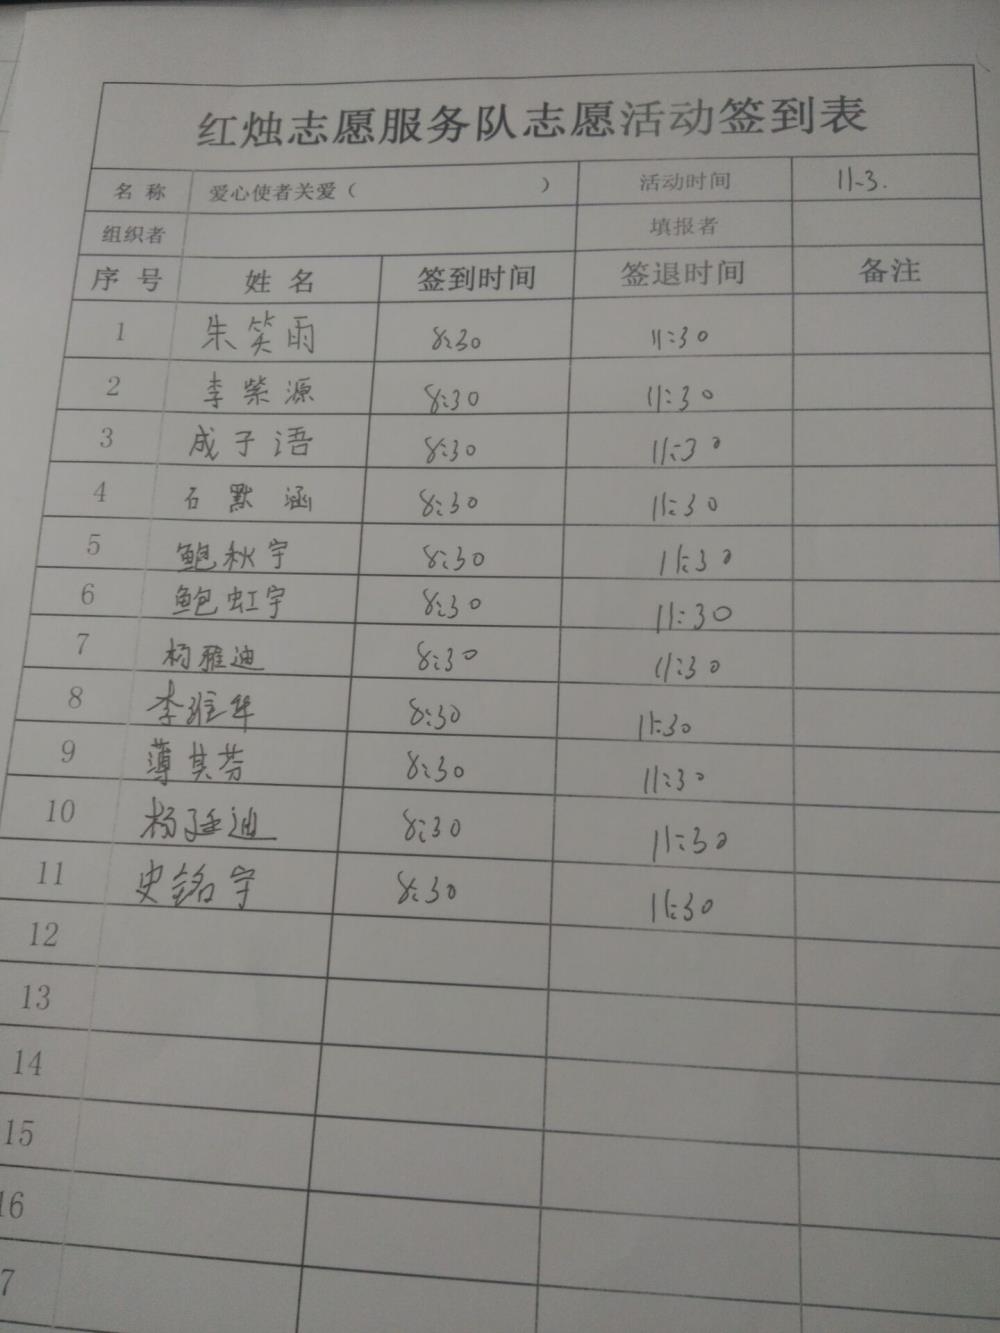 红烛志愿服务队志愿活动签到表
名 称 爱心使者关爱（ ） 活动时间 11.3.
组织者 填报者
序 号 姓 名 签到时间 签退时间 备注
1 朱笑雨 8:30 11:30
2 李紫源 8:30 11:30
3 成子语 8:30 11:30
4 石默涵 8:30 11:30
5 鲍秋宇 8:30 11:30
6 鲍虹宇 8:30 11:30
7 杨雅迪 8:30 11:30
8 8:30 11:30
9 薄其芬 8:30 11:30
10 8:30 11:30
11 史铭宇 8:30 11:30
12
13
14
15
16
7